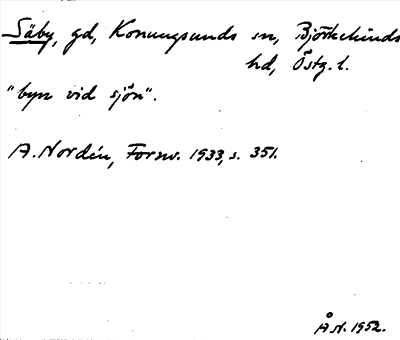 Säby, gd, Konungsunds sn, Björkekinds
hd, Östg. l.
"byn vid sjön".
A. Nordén, Fornv. 1933, s. 351.
Å.N. 1952.